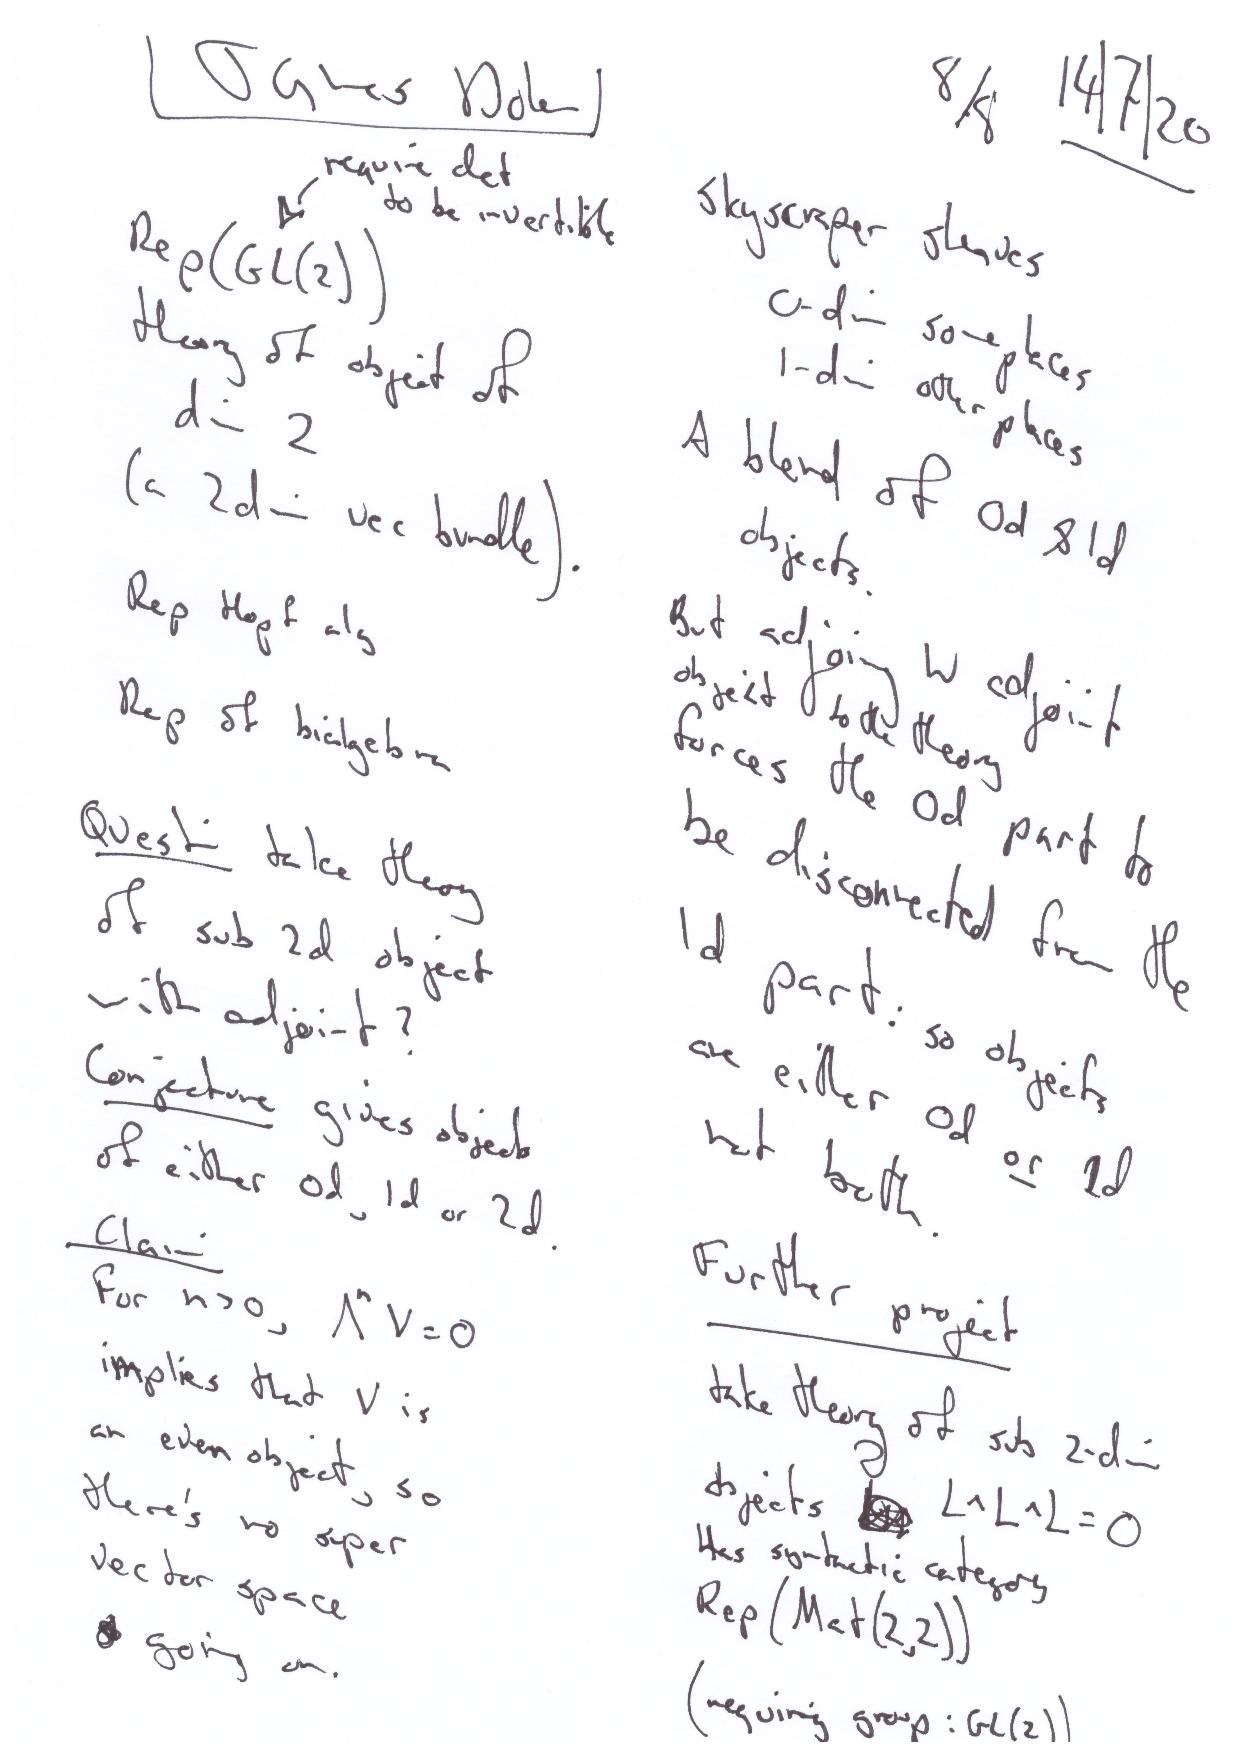 James Dolan
8/8 14/7/20
require det
to be invertible
Rep(GL(2))
theory of object of
dim 2
(a 2dim vec bundle).
Rep Hopf alg
Rep of bialgebra
Question take theory
of sub 2d object
with adjoint?
Conjecture gives objects
of either 0d, 1d or 2d.
Claim
For n>0, Λⁿ V=0
implies that V is
an even object, so
there's no super
vector space
going on.
Skyscraper sheaves
0-dim some places
1-dim other places
A blend of 0d & 1d
objects.
But adjoing W adjoint
object to the theory
forces the 0d part to
be disconnected from the
1d part: so objects
are either 0d or 1d
not both.
Further project
take theory of sub 2-dim
objects L L∧L∧L=0
Has syntactic category
Rep(Mat(2,2))
(requiring group: GL(2))